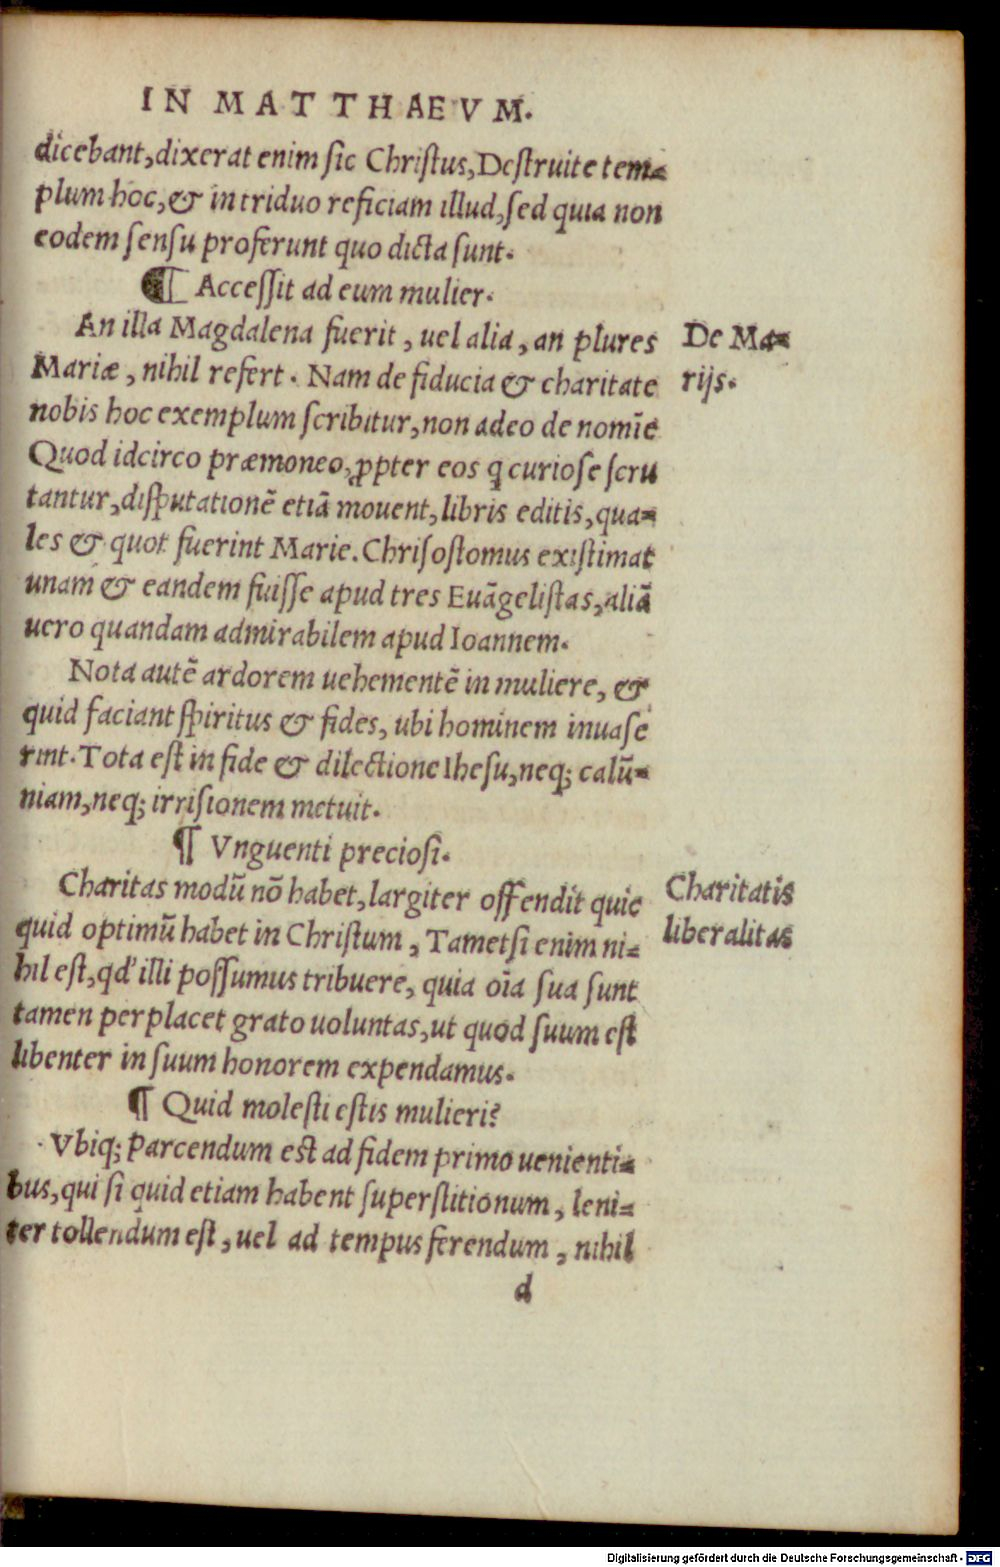 IN MATTHAEVM.
dicebant,dixerat enim sic Christus,Destruite tem=
plum hoc,& in triduo reficiam illud,sed quia non
eodem sensu proferunt quo dicta sunt.
¶ Accessit ad eum mulier.
An illa Magdalena fuerit, uel alia, an plures
De Ma=
Mariæ, nihil refert. Nam de fiducia & charitate
rijs.
nobis hoc exemplum scribitur,non adeo de nomīe
Quod idcirco præmoneo,ꝓpter eos q̃ curiose scru
tantur,disputationē etiā mouent,libris editis,qua=
les & quot fuerint Marie. Chrisostomus existimat
unam & eandem fuisse apud tres Euāgelistas,aliā
uero quandam admirabilem apud Ioannem.
Nota autē ardorem uehementē in muliere, &
quid faciant spiritus & fides, ubi hominem inuase
rint. Tota est in fide & dilectione Ihesu,neq; calū=
niam,neq; irrisionem metuit.
¶ Vnguenti preciosi.
Charitas modū nō habet,largiter offendit quic
Charitatis
quid optimū habet in Christum, Tametsi enim ni=
liberalitas
hil est,qd' illi possumus tribuere, quia oīa sua sunt
tamen perplacet grato uoluntas,ut quod suum est
libenter in suum honorem expendamus.
¶ Quid molesti estis mulieri?
Vbiq; parcendum est ad fidem primo uenienti=
bus,qui si quid etiam habent superstitionum, leni=
ter tollendum est, uel ad tempus ferendum, nihil
d
Digitalisierung gefördert durch die Deutsche Forschungsgemeinschaft - DFG